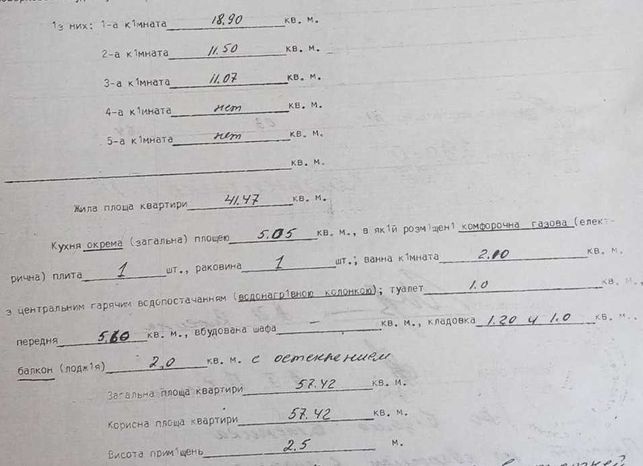 із них: 1-а кімната 18.90 кв. м.
2-а кімната 11.50 кв. м.
3-а кімната 11.07 кв. м.
4-а кімната нет кв. м.
5-а кімната нет кв. м.
кв. м.
Жила площа квартири 41.47 кв. м.
Кухня окрема (загальна) площею 5.05 кв. м., в якій розміщені комфорочна газова (елект-
рична) плита 1 шт., раковина 1 шт.; ванна кімната 2.10 кв. м.
з центральним гарячим водопостачанням (водонагрівною колонкою); туалет 1.0 кв. м.,
передня 5.60 кв. м., вбудована шафа кв. м., кладовка 1.20 и 1.0 кв.
балкон (лоджія) 2,0 кв. м. с остеклением
Загальна площа квартири 57.42 кв. м.
Корисна площа квартири 57.42 кв. м.
Висота приміщень 2.5 м.